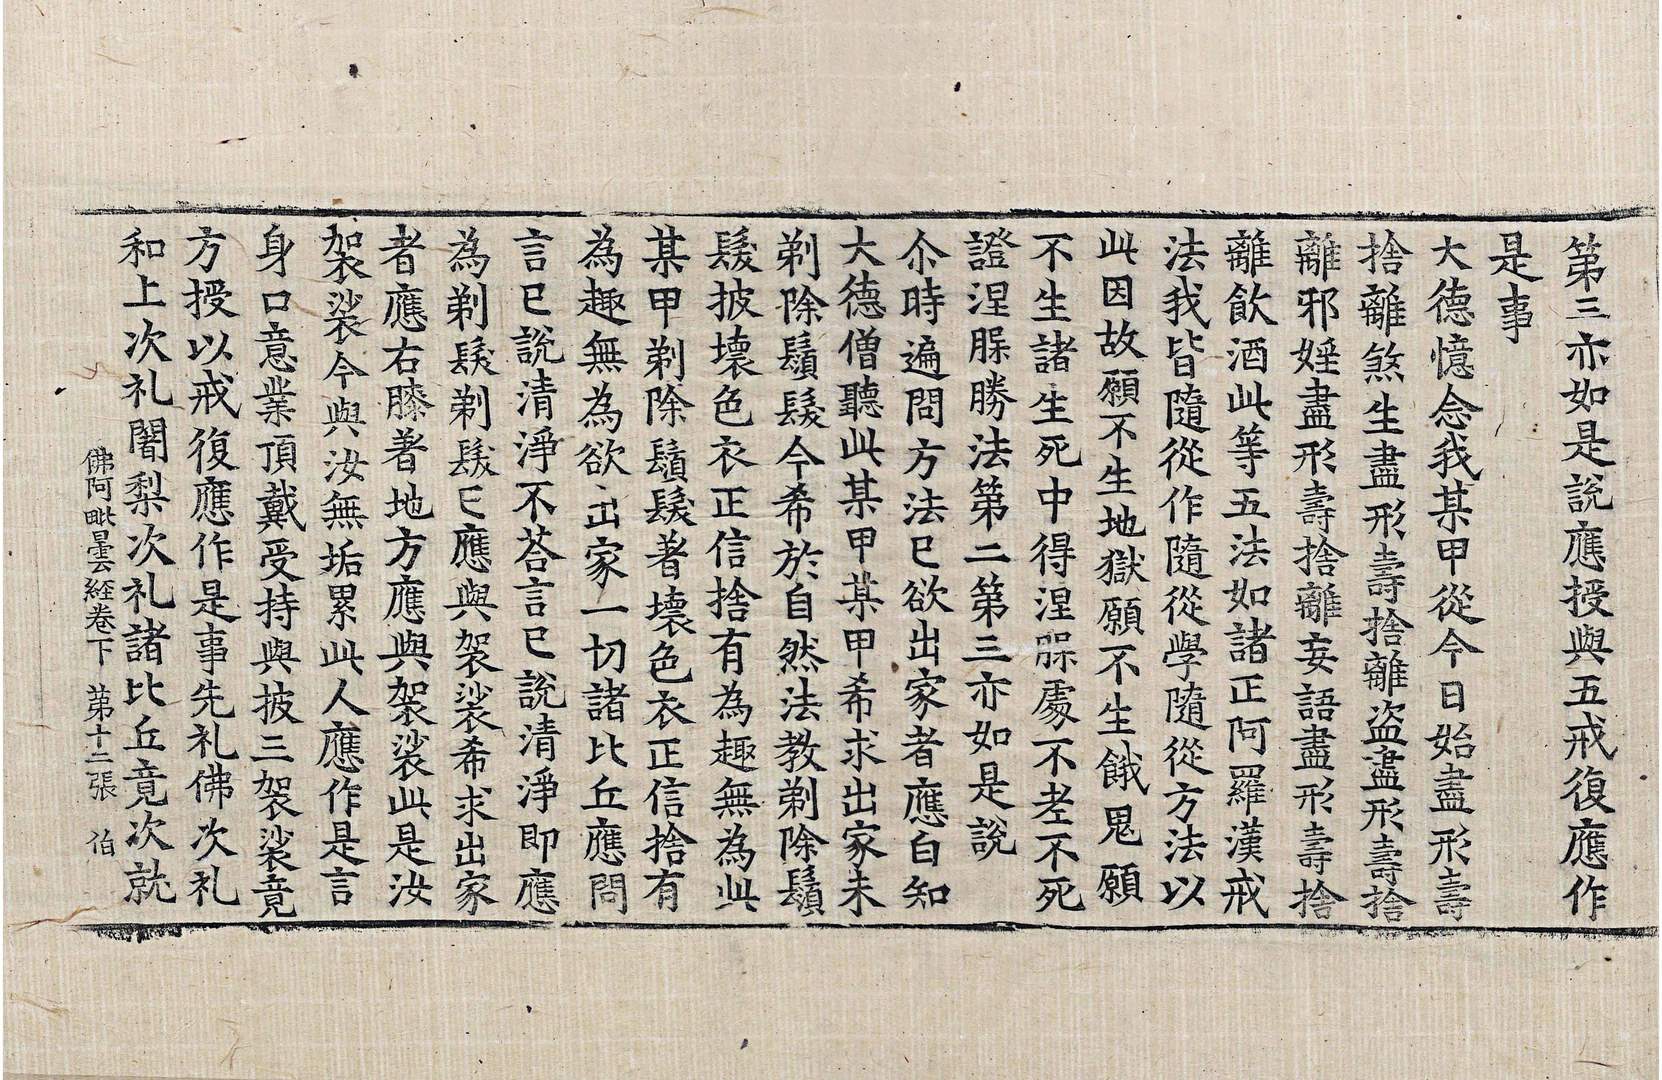 第三亦如是說應授與五戒復應作
是事
大德憶念我某甲從今日始盡形壽
捨離煞生盡形壽捨離盜盡形壽捨
離邪婬盡形壽捨離妄語盡形壽捨
離飲酒此等五法如諸正阿羅漢戒
法我皆隨從作隨從學隨從方法以
此因故願不生地獄願不生餓鬼願
不生諸生死中得涅槃處不老不死
證涅槃勝法第二第三亦如是說
尒時遍問方法已欲出家者應白知
大德僧聽此某甲某甲希求出家未
剃除鬚髮今希於自然法教剃除鬚
髮披壞色衣正信捨有為趣無為此
某甲剃除鬚髮著壞色衣正信捨有
為趣無為欲出家一切諸比丘應問
言已說清淨不荅言已說清淨即應
為剃髮剃髮已應與袈裟希求出家
者應右膝著地方應與袈裟此是汝
袈裟今與汝無垢累此人應作是言
身口意業頂戴受持與披三袈裟竟
方授以戒復應作是事先礼佛次礼
和上次礼闍梨次礼諸比丘竟次就
佛阿毗曇經卷下　第十二張　伯